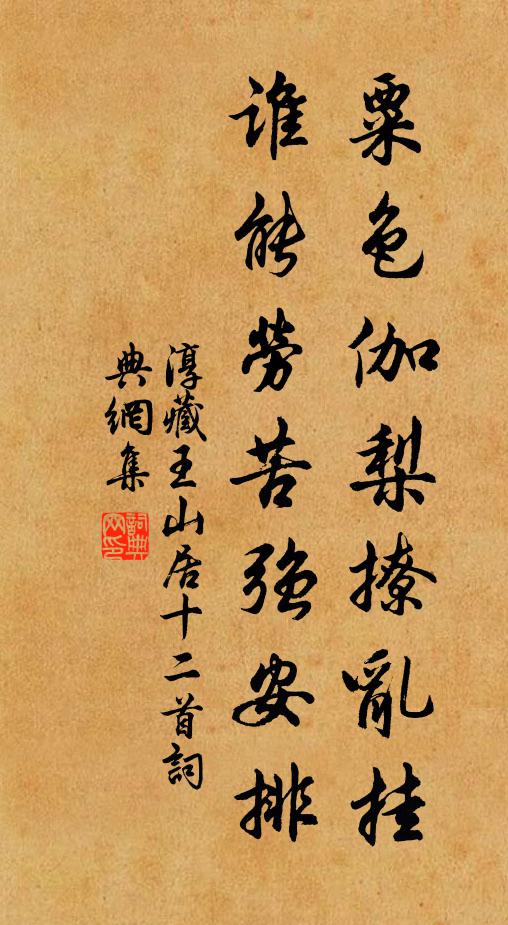 粟色伽梨撩亂挂
誰能勞苦強安排
淳藏王山居十二首詞
典網集
詞典網印